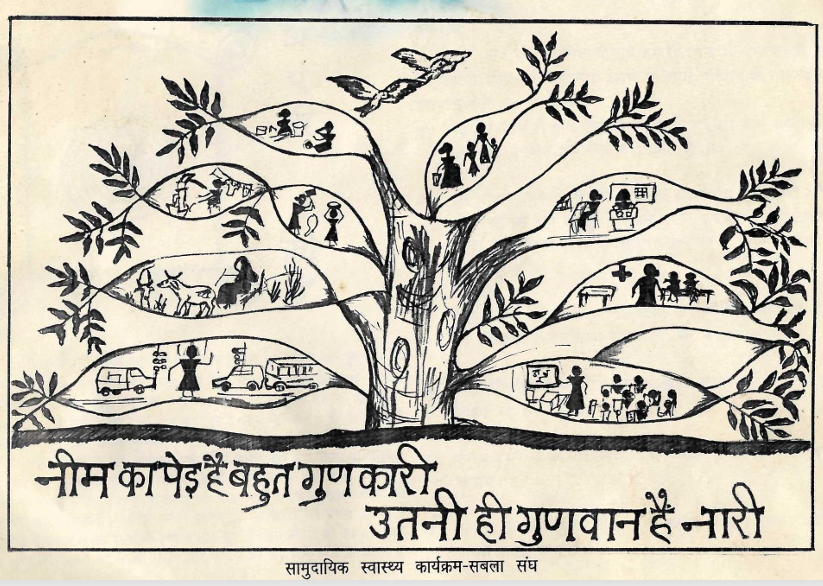 नीम का पेड़ है बहुत गुणकारी
उतनी ही गुणवान है नारी
सामुदायिक स्वास्थ्य कार्यक्रम-सबला संघ